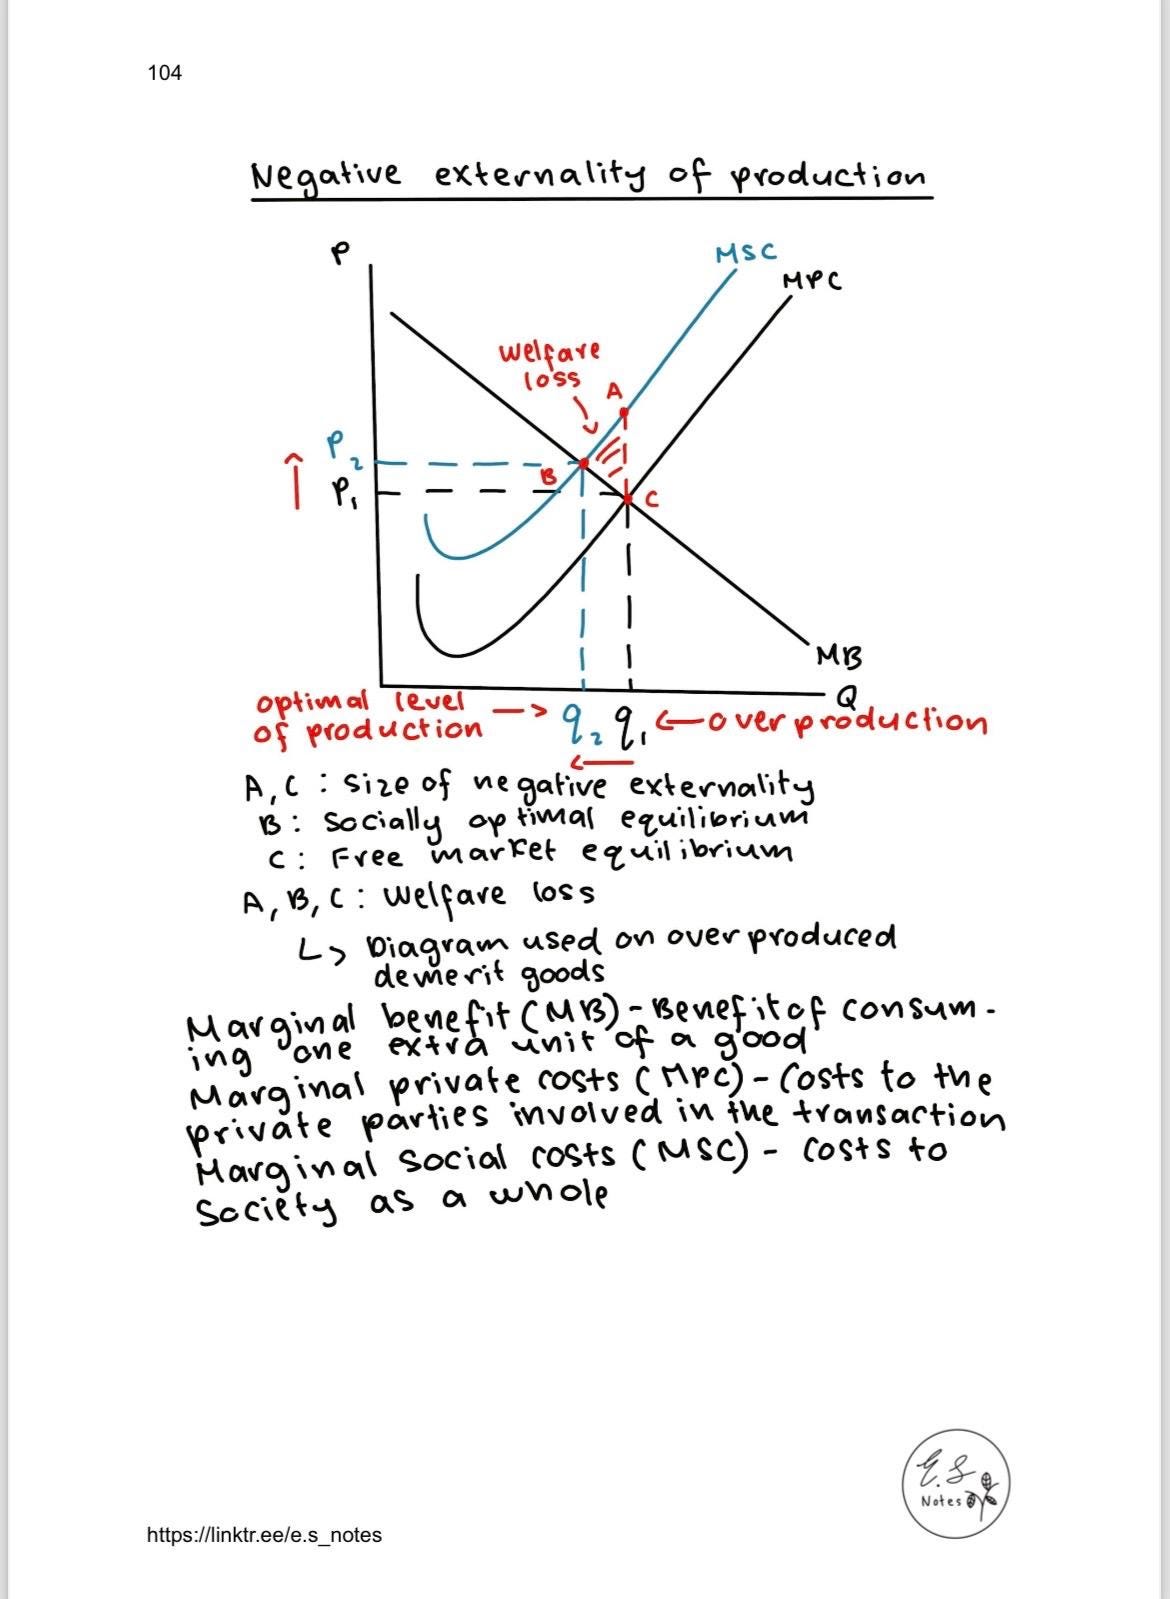 104
Negative externality of production
P
MSC
MPC
welfare
loss
A
P2
B
P1
C
MB
Q
optimal level
of production
q2 q1
over production
A, C : Size of negative externality
B : Socially optimal equilibrium
C : Free market equilibrium
A, B, C : Welfare loss
Diagram used on over produced
demerit goods
Marginal benefit (MB) - Benefit of consum-
ing one extra unit of a good
Marginal private costs (MPC) - Costs to the
private parties involved in the transaction
Marginal social costs (MSC) - costs to
society as a whole
E.S
Notes
https://linktr.ee/e.s_notes